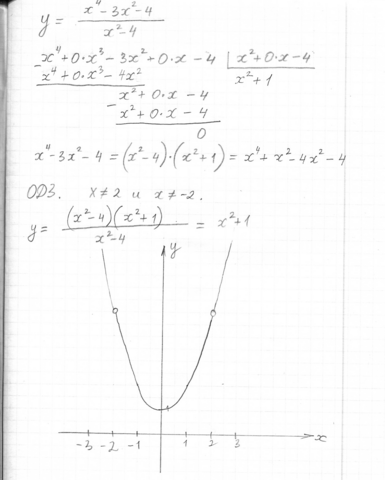 y = (x⁴ - 3x² - 4) / (x² - 4)
x⁴ + 0·x³ - 3x² + 0·x - 4 | x² + 0·x - 4
x⁴ + 0·x³ - 4x² | x² + 1
x² + 0·x - 4
x² + 0·x - 4
0
x⁴ - 3x² - 4 = (x² - 4)·(x² + 1) = x⁴ + x² - 4x² - 4
ОДЗ. x ≠ 2 и x ≠ -2.
y = (x² - 4)(x² + 1) / (x² - 4) = x² + 1
y
-3 -2 -1 1 2 3 x